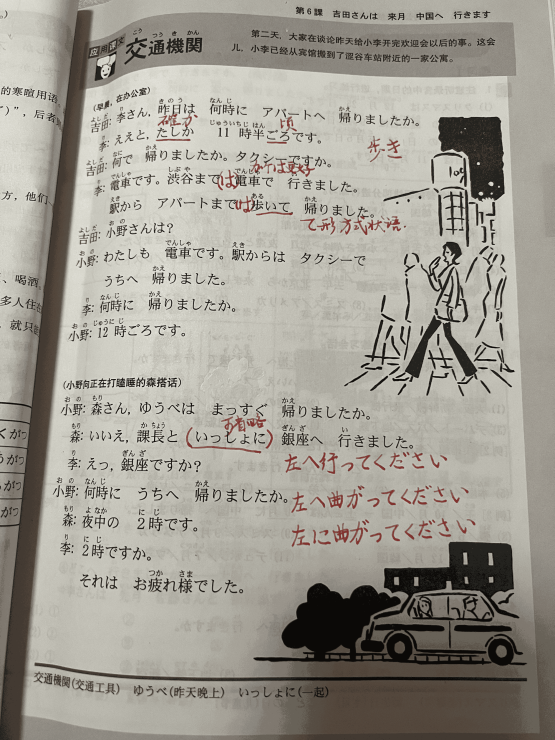 第6課 吉田さんは 来月 中国へ 行きます
应用课文 交通機関
第二天，大家在谈论昨天给小李开完欢迎会以后的事。这会
儿，小李已经从宾馆搬到了涩谷车站附近的一家公寓。
(早晨，在办公室)
吉田: 李さん，昨日は 何時に アパートへ 帰りましたか。
確か 頃
李: ええと，たしか 11時半ごろです。
吉田: 何で 帰りましたか。タクシーですか。
歩き
李: 電車です。渋谷まで は 電車で 行きました。
駅から アパートまで は 歩いて 帰りました。
て形 方式状语.
吉田: 小野さんは？
小野: わたしも 電車です。駅からは タクシーで
うちへ 帰りました。
李: 何時に 帰りましたか。
小野: 12時ごろです。
(小野向正在打瞌睡的森搭话)
小野: 森さん，ゆうべは まっすぐ 帰りましたか。
可省略
森: いいえ，課長と (いっしょに) 銀座へ 行きました。
李: えっ，銀座ですか？
左へ行ってください
小野: 何時に うちへ 帰りましたか。
左へ曲がってください
森: 夜中の 2時です。
左に曲がってください
李: 2時ですか。
それは お疲れ様でした。
交通機関(交通工具) ゆうべ(昨天晚上) いっしょに(一起)
的寒暄用语
)"，后者
方，他们
、喝酒
多人住
，就只能